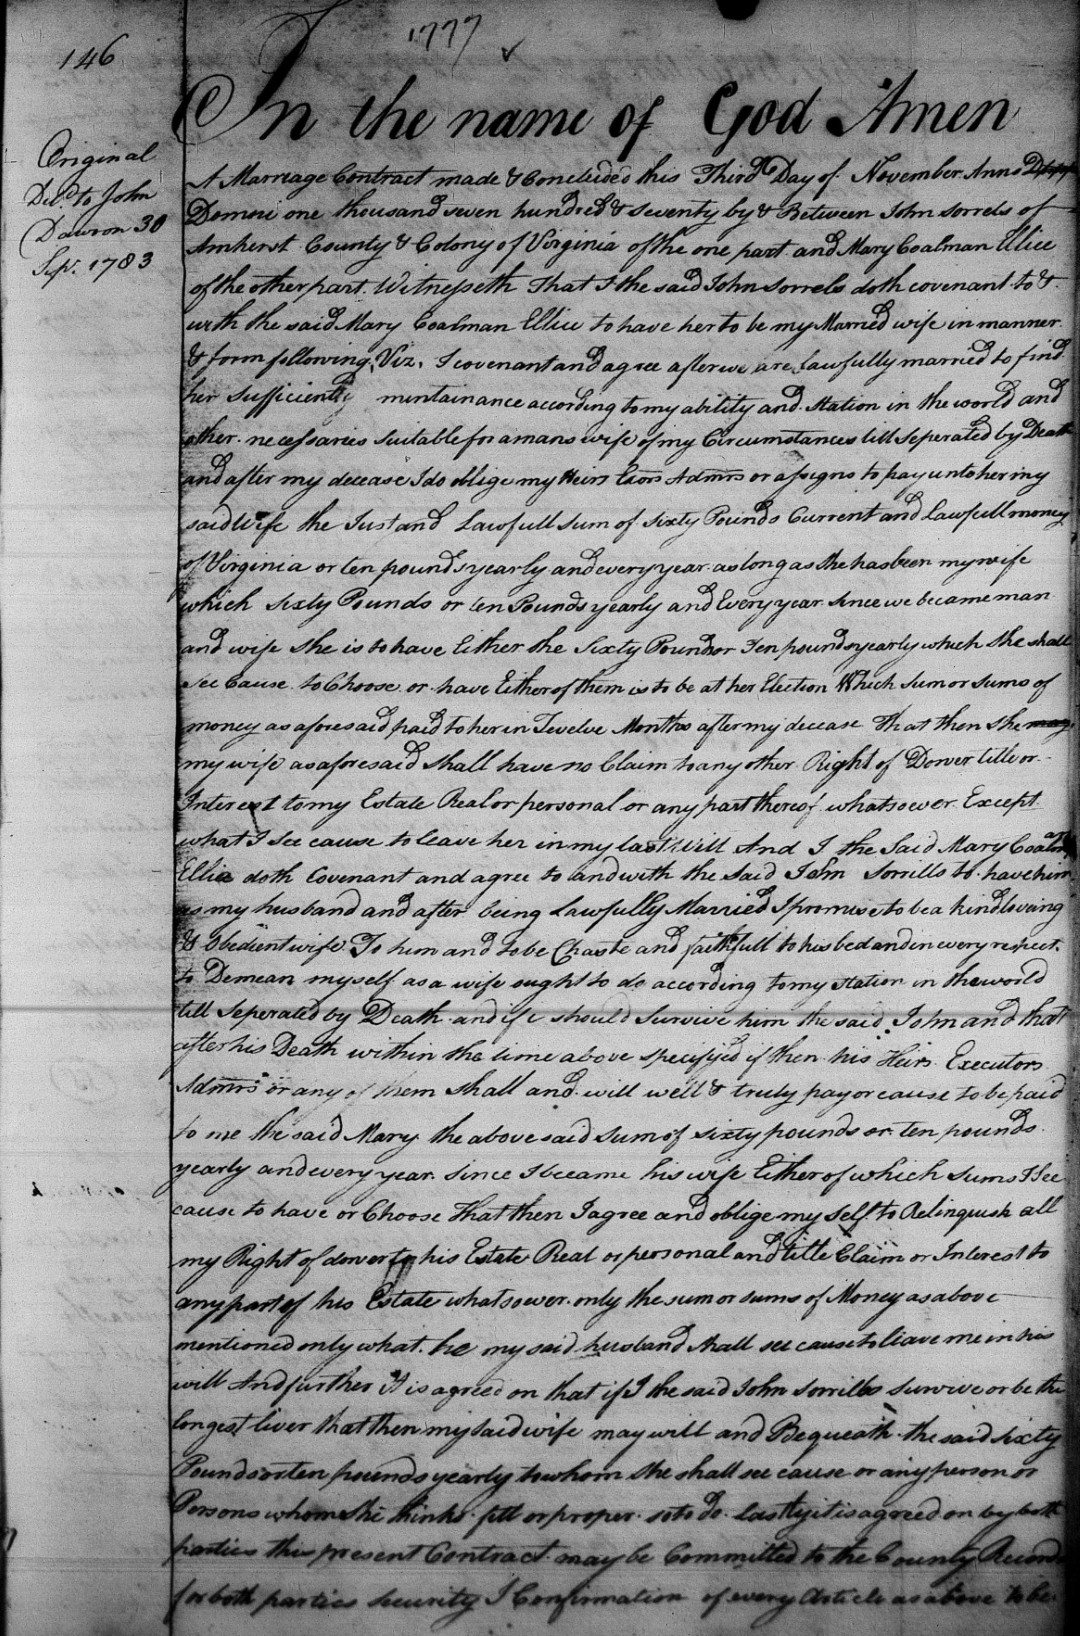 1777
146
In the name of God Amen
Original
Del.d to John
Dawson 30
Sep.r 1783
A Marriage Contract made & Concluded this Third Day of November Anno
Domini one thousand seven hundred & seventy by & Between John Sorrels of
Amherst County & Colony of Virginia of the one part and Mary Coalman Ellice
of the other part. Witnesseth That I the said John Sorrels doth covenant to &
with the said Mary Coalman Ellice to have her to be my Married wife in manner
& form following, Viz, I covenant and agree after we are Lawfully married to find
her Sufficiently mentainance according to my ability and Station in the world and
other necessaries Suitable for a mans wife of my Circumstances till Seperated by Death
and after my decease I do oblige my Heirs Exors Admrs or assigns to pay unto her my
said wife the Just and Lawfull Sum of Sixty Pounds Current and Lawfull money
of Virginia or ten pounds yearly and every year as long as She has been my wife
which Sixty Pounds or ten Pounds yearly and Every year Since we became man
and wife She is to have Either the Sixty Pounds or Ten pounds yearly which She shall
See Cause to Choose or have Either of them is to be at her Election Which Sum or Sums of
money as aforesaid paid to her in Twelve Months after my decease That then She may
my wife as aforesaid Shall have no Claim to any other Right of Dower title or
Interest to my Estate Real or personal or any part thereof whatsoever Except
what I See cause to leave her in my last Will And I the Said Mary Coalman
Ellice doth Covenant and agree to and with the Said John Sorrills to have him
as my husband and after being Lawfully Married I promise to be a kind loving
& Obedient wife To him and to be Chaste and faithfull to his bed and in every respect
to Demean myself as a wife ought to do according to my Station in the world
till Seperated by Death and if I should Survive him the said John and that
after his Death within the time above specifyed if then his Heirs Executors
Admrs or any of them Shall and will well & truly pay or cause to be paid
to me the said Mary the above said Sum of Sixty pounds or ten pounds
yearly and every year Since I became his wife Either of which Sums I See
cause to have or Choose That then I agree and oblige my Self to Relinquish all
my Right of dower to his Estate Real or personal and title Claim or Interest to
any part of his Estate whatsoever only the sum or sums of Money as above
mentioned only what he my said husband Shall see cause to leave me in his
will And further it is agreed on that if I the said John Sorrills Survive or be the
longest liver that then my Said wife may will and Bequeath the said Sixty
Pounds or ten pounds yearly to whom She shall see cause or any person or
Persons whom She thinks fitt or proper so to do lastly it is agreed on by both
parties this present Contract may be Committed to the County Records
for both parties Security I Confirmation of every Article as above to be